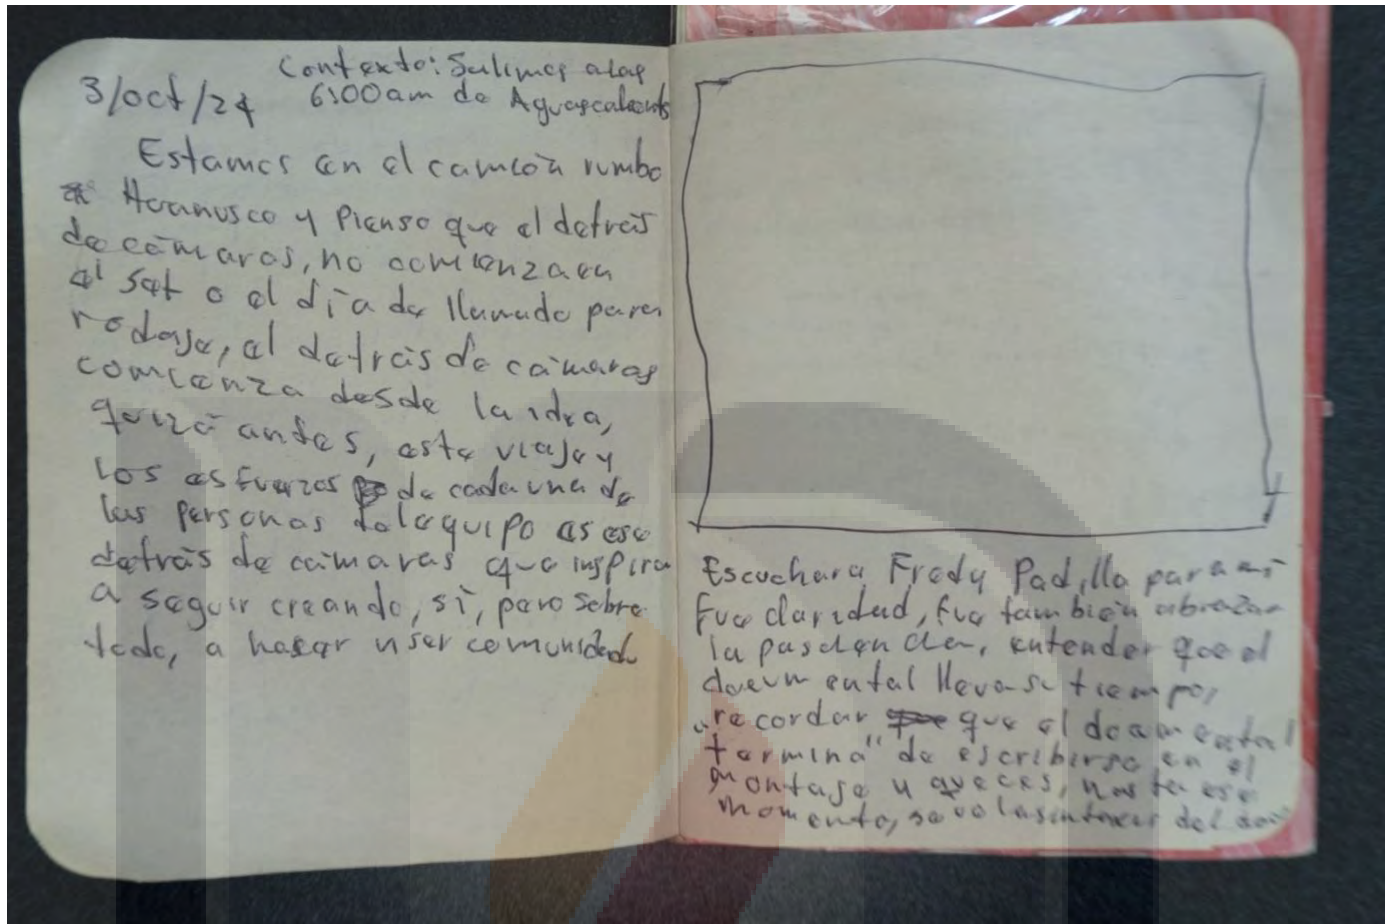 Contexto: Salimos a las
3/oct/24 6:00 am de Aguascalientes
Estamos en el camión rumbo
a Huanusco y Pienso que el detrás
de cámaras, no comienza en
el set o el día de llamado para
rodaje, el detrás de cámaras
comienza desde la idea,
quizá antes, este viaje y
los esfuerzos de cada una de
las personas del equipo es ese
detrás de cámaras que inspira
a seguir creando, sí, pero sobre
todo, a hacer y ser comunidad
Escuchar a Fredy Padilla para mí
fue claridad, fue también abrazar
la, entender que el
documental lleva su tiempo,
recordar que el documental
"termina" de escribirse en el
montaje y a veces, hasta ese
momento, se ve la del